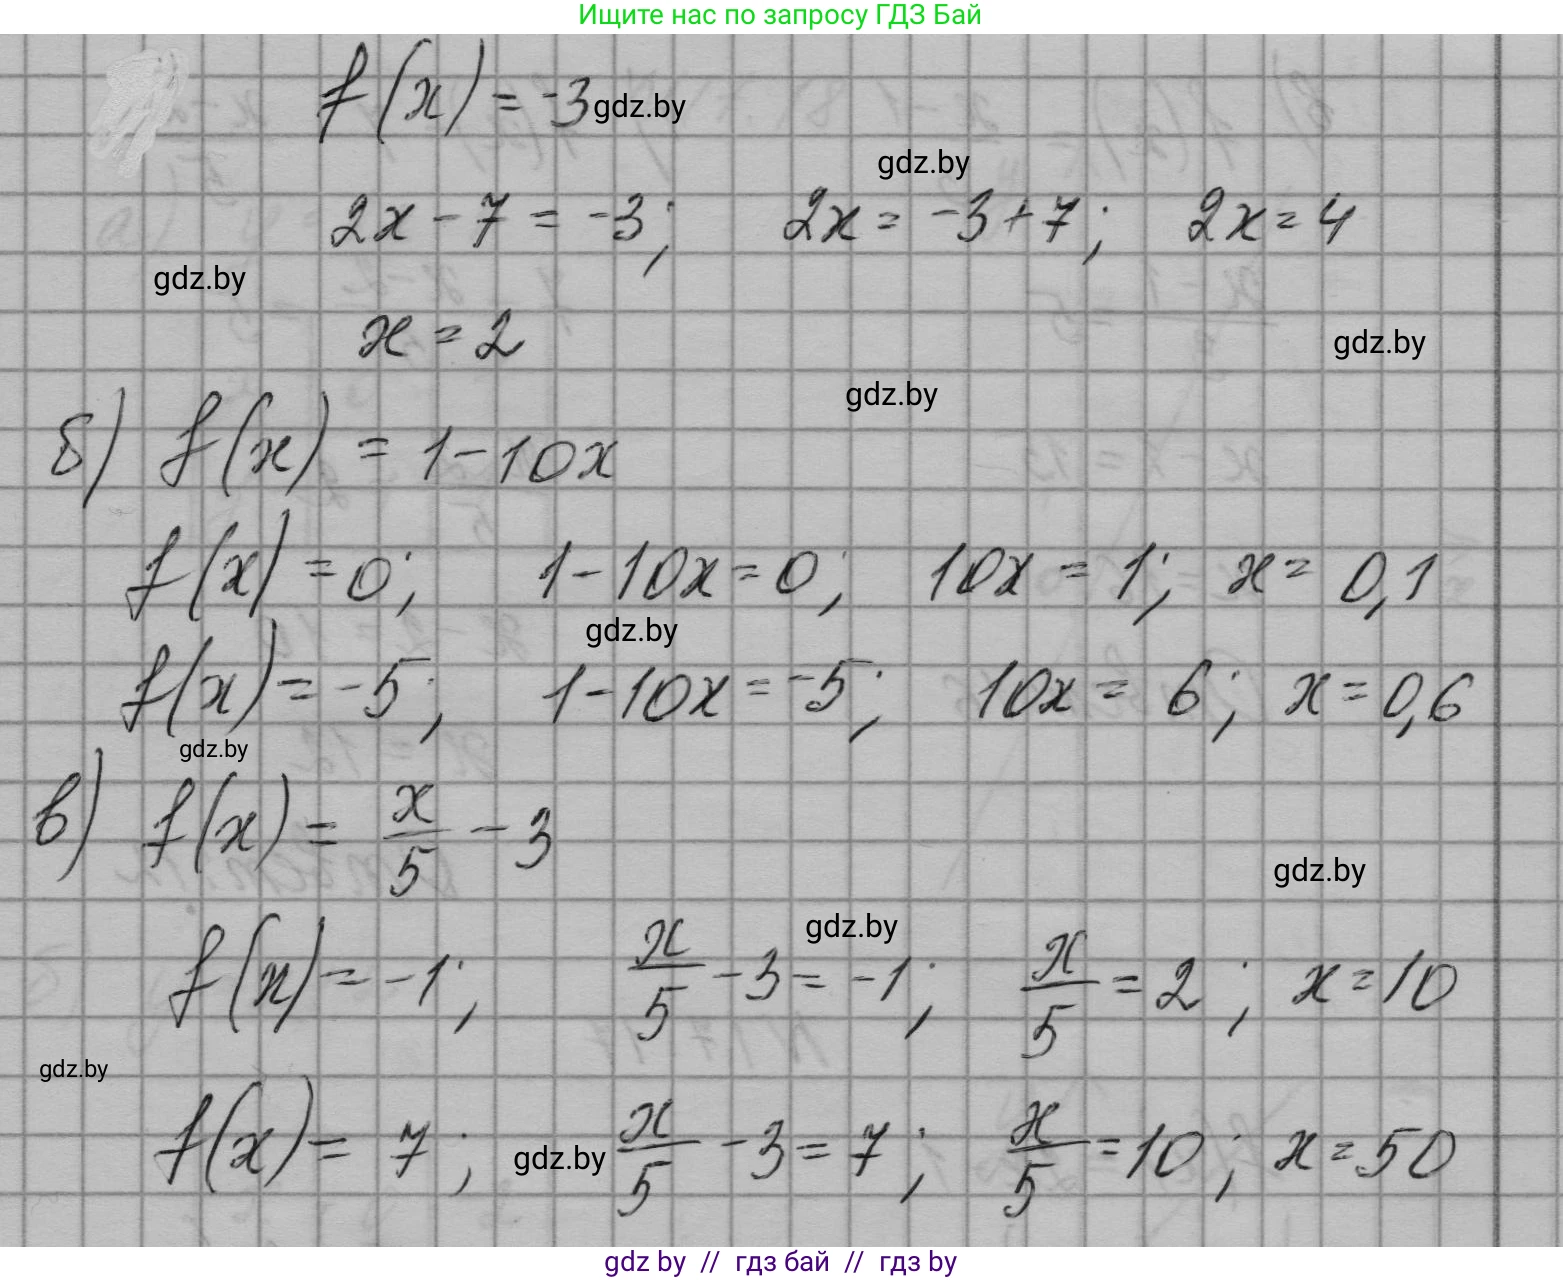 Ищите нас по запросу ГДЗ Бай
f(x) = -3 gdz.by
gdz.by
2x - 7 = -3; 2x = -3+7; 2x = 4
gdz.by
x = 2
gdz.by
gdz.by
б) f(x) = 1-10x
f(x) = 0; 1-10x = 0; 10x = 1; x = 0,1
gdz.by
f(x) = -5; 1-10x = -5; 10x = 6; x = 0,6
gdz.by
в) f(x) = x/5 - 3
gdz.by
gdz.by
f(x) = -1; x/5 - 3 = -1; x/5 = 2; x = 10
gdz.by
f(x) = 7; gdz.by x/5 - 3 = 7; x/5 = 10; x = 50
gdz by // гдз бай // гдз by